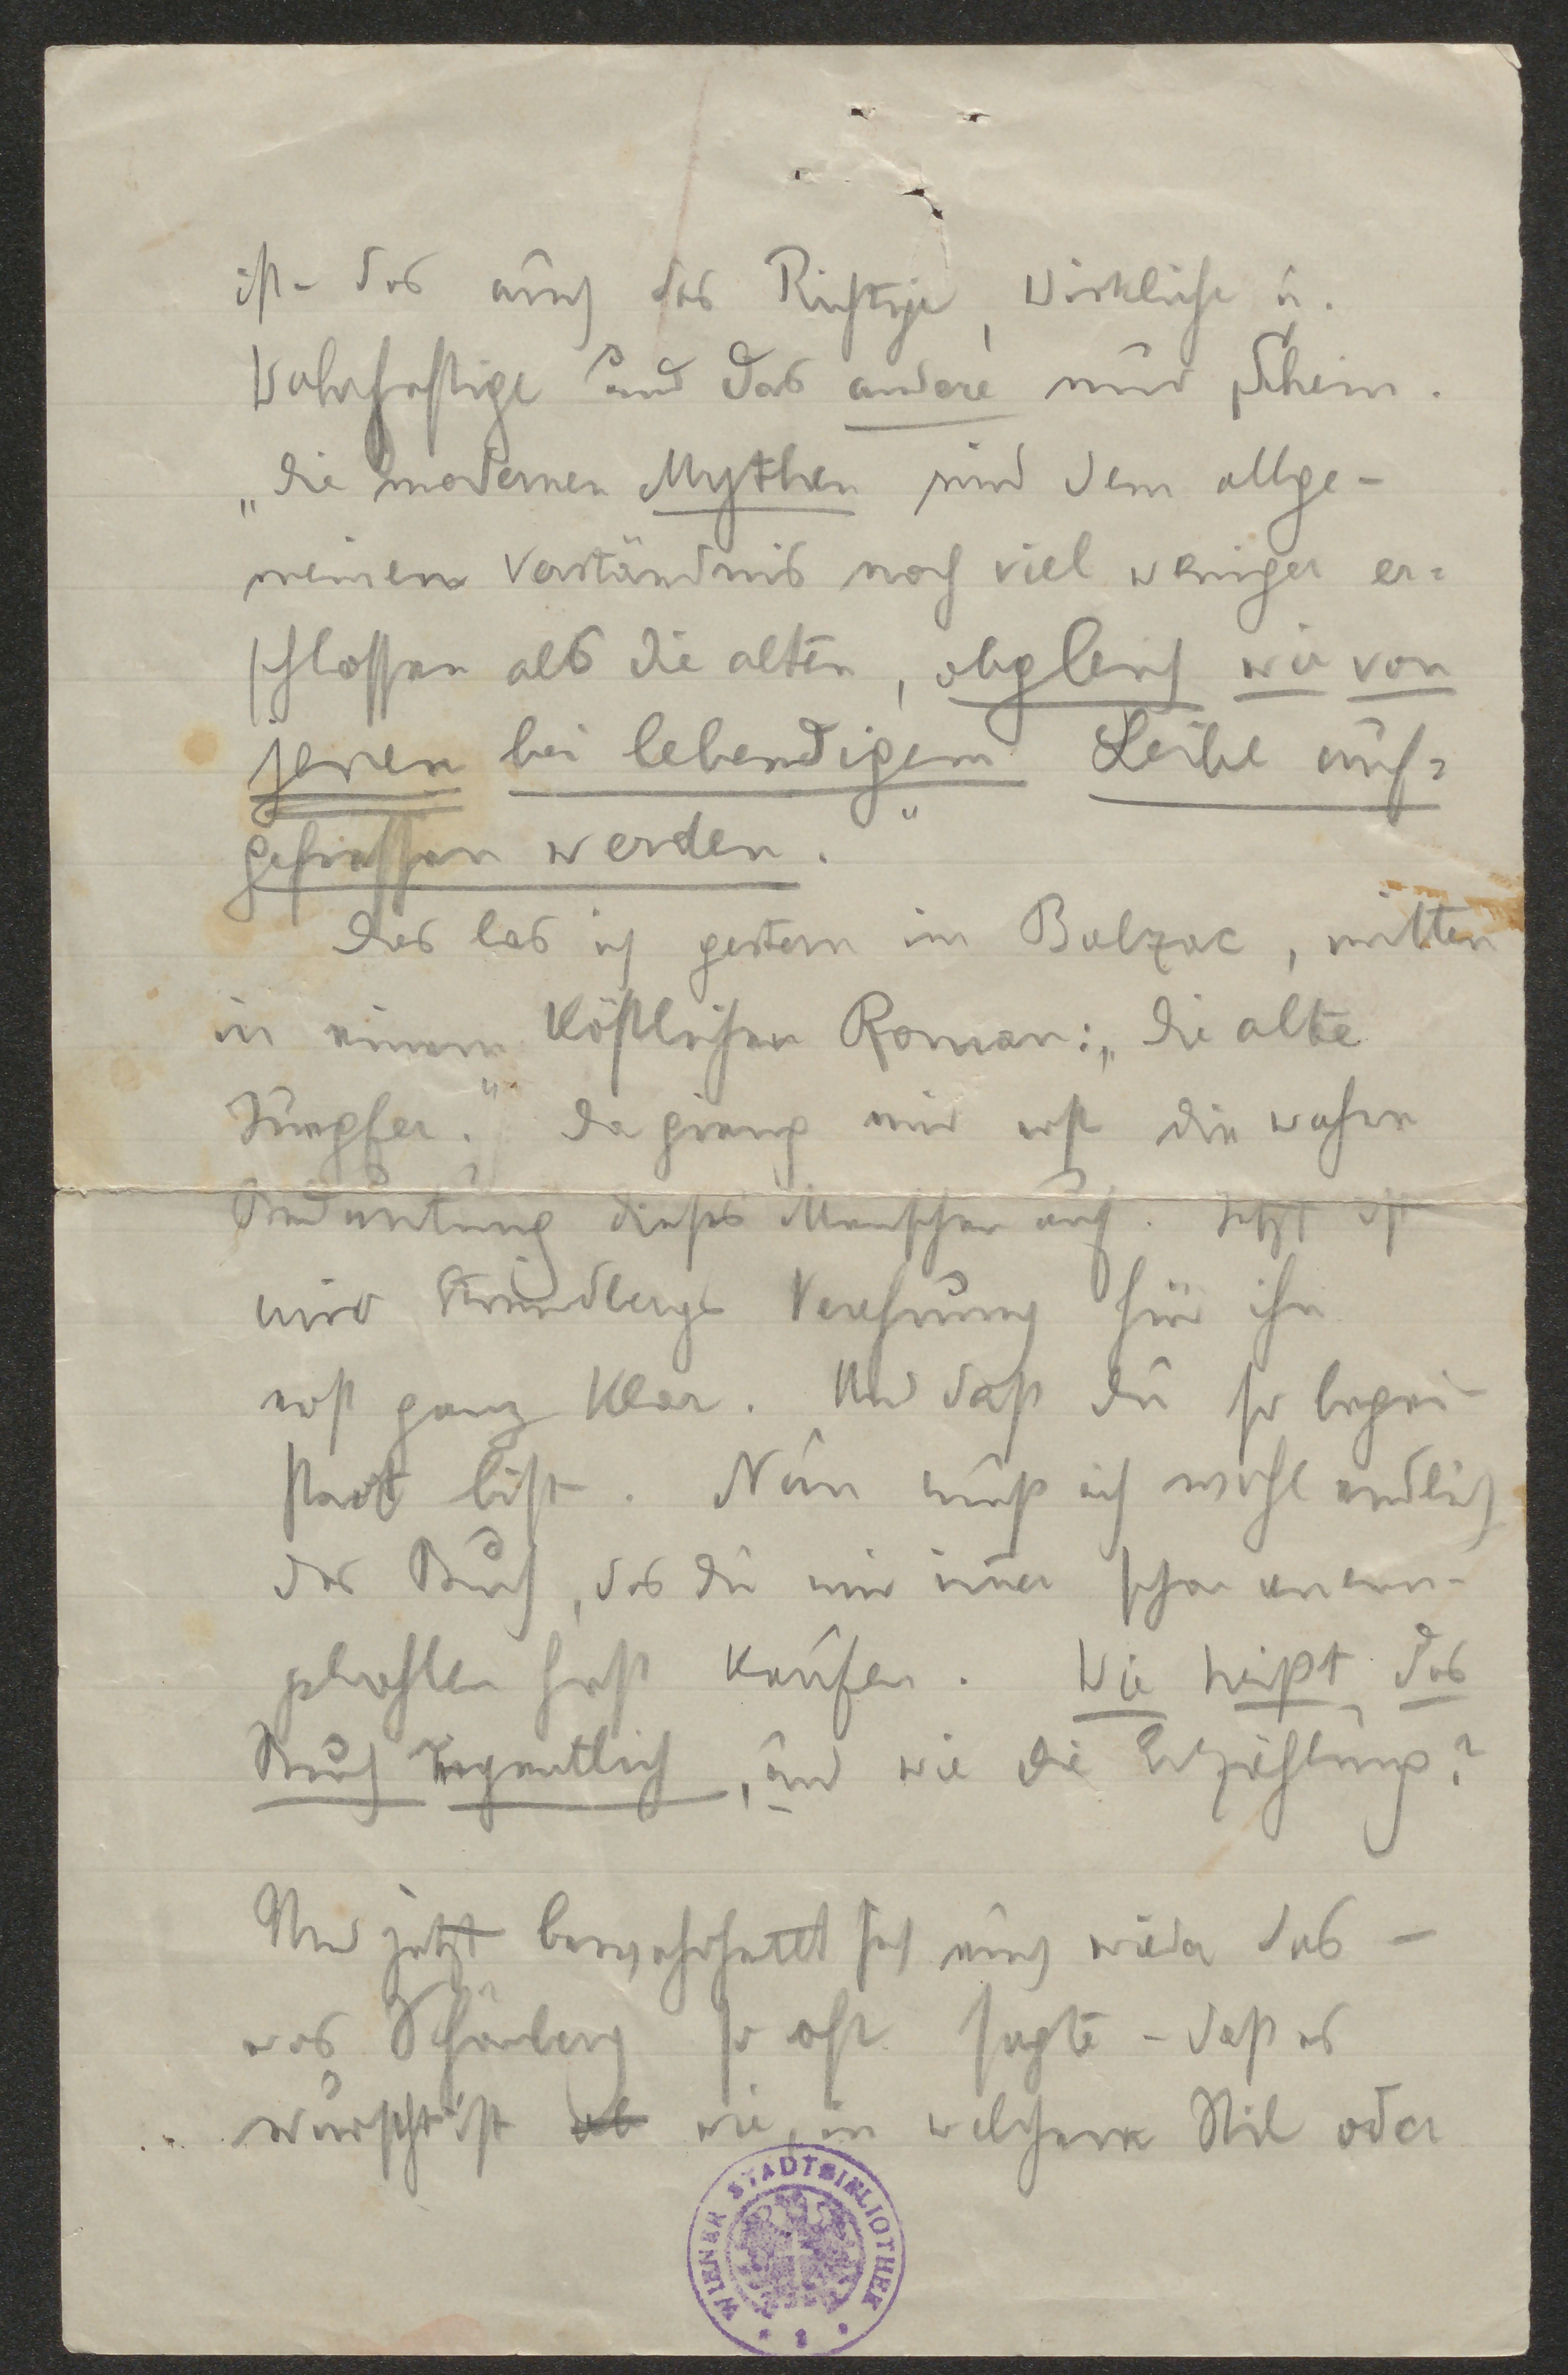 ist - das auch das Richtige, Wirkliche u.
Wahrhaftige und das andere nur Schein.
„Die modernen Mythen sind dem allge-
meinen Verständnis noch viel weniger er=
schlossen als die alten, obgleich wir von
jenen bei lebendigem Leibe auf=
gefressen werden."
Das las ich gestern im Balzac, mitten
in einem köstlichen Roman: „Die alte
Jungfer." Da gieng mir erst die wahre
Bedeutung dieses Menschen auf. Jetzt ist
mir Strindbergs Verehrung für ihn
erst ganz klar. Und daß Du so begei-
stert bist. Nun muß ich wohl endlich
das Buch, das Du mir immer schon anem-
pfohlen hast kaufen. Wie heißt das
Buch eigentlich, und wie die Erzählung?
Und jetzt bewahrheitet sich auch wieder das -
was Schönberg so oft sagte - daß es
wurscht ist ob wie, in welchem Stil oder
WIENER STADTBIBLIOTHEK